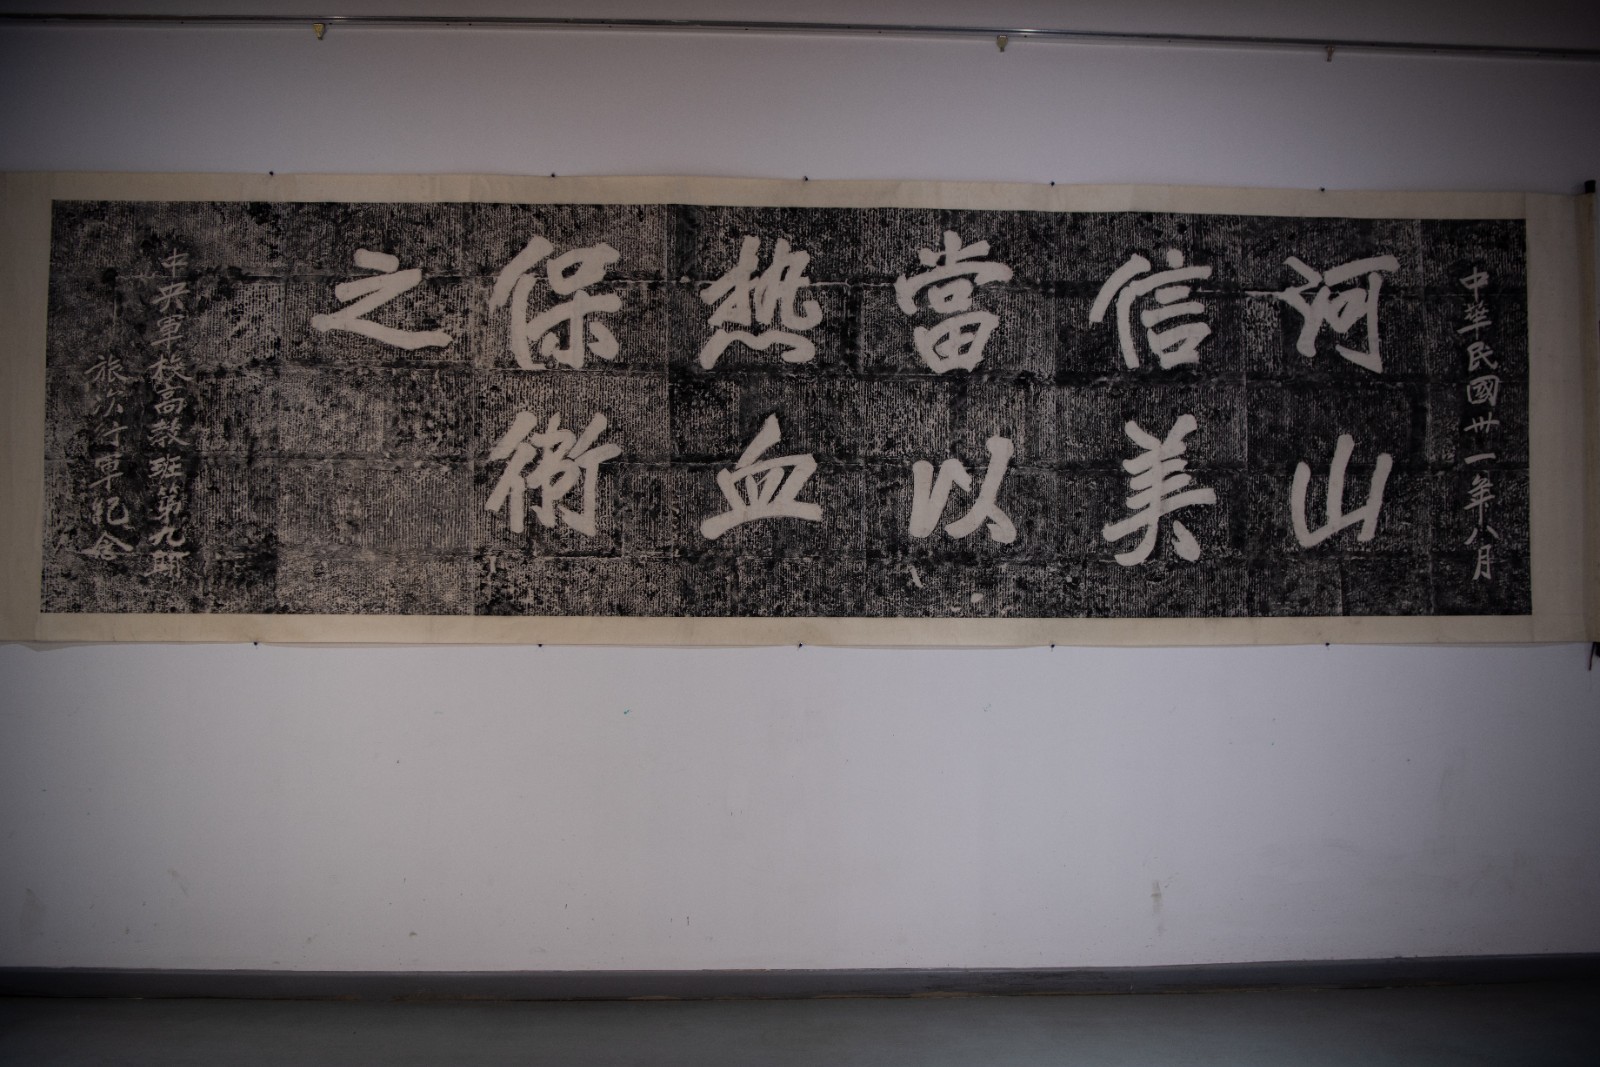 中華民國卅一年八月
河山
信美
當以
热血
保衛
之
中央軍校高教班第九期
旅次行軍紀念